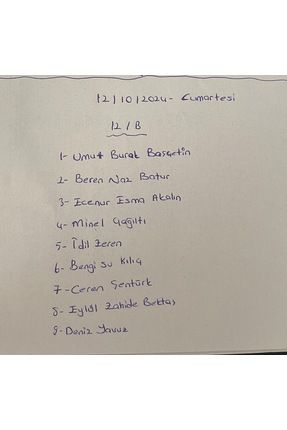 12/10/2024- Cumartesi
12/B
1- Umut Burak Başçetin
2- Beren Naz Batur
3- Ecenur Esma Akalın
4- Minel Çağıltı
5- İdil Zeren
6- Bengi su Kılıç
7- Ceren Şentürk
8- Eylül Zahide Bektaş
9- Deniz Yavuz